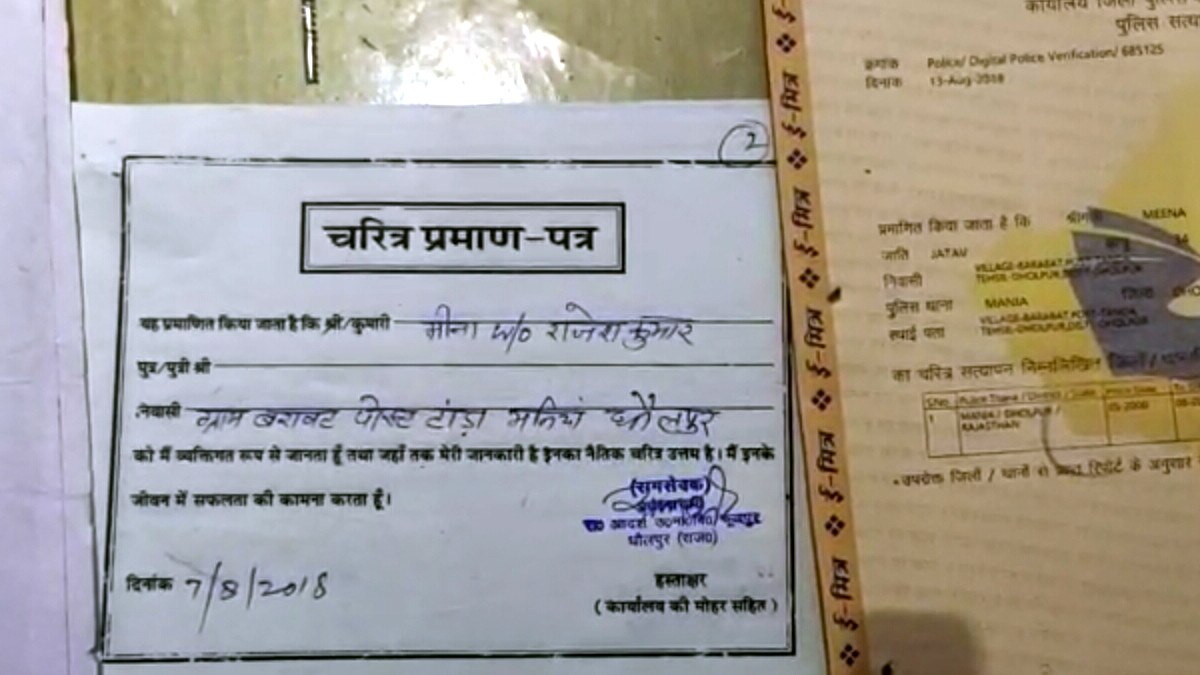 2
चरित्र प्रमाण-पत्र
यह प्रमाणित किया जाता है कि श्री/कुमारी मीना w/o राजेश कुमार
पुत्र/पुत्री श्री
निवासी ग्राम बरावट पोस्ट टांडा मनियां धौलपुर
को मैं व्यक्तिगत रूप से जानता हूँ तथा जहाँ तक मेरी जानकारी है इनका नैतिक चरित्र उत्तम है। मैं इनके
जीवन में सफलता की कामना करता हूँ।
(रामसेवक)
धौलपुर (राज0)
दिनांक 7/8/2018
हस्ताक्षर
(कार्यालय की मोहर सहित)
ई-मित्र ई-मित्र ई-मित्र ई-मित्र ई-मित्र ई-मित्र
कार्यालय जिला पुलिस
पुलिस सत्या
क्रमांक Police/ Digital Police Verification/ 685125
दिनांक 13-Aug-2018
प्रमाणित किया जाता है कि श्रीमती MEENA
जाति JATAV
निवासी VILLAGE-BARABAT,POST-
TEHSIL-DHOLPUR,
पुलिस थाना MANIA जिला
स्थाई पता VILLAGE-BARABAT POST-TANDA,
TEHSIL-DHOLPUR, DHOLPUR
का चरित्र सत्यापन निम्नलिखित जिलों /
S.No.
1 MANIA / DHOLPUR /
RAJASTHAN
उपरोक्त जिलों / थानों से प्राप्त रिपोर्ट के अनुसार